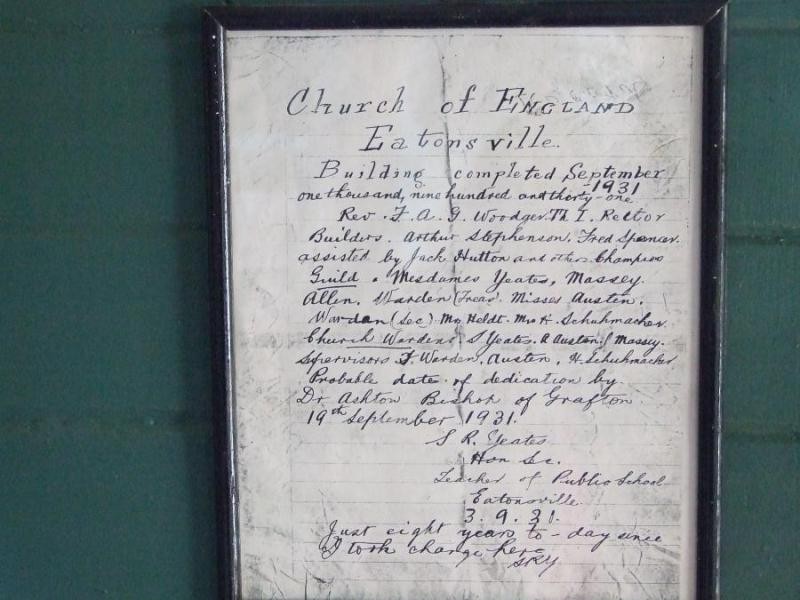 Church of ENGLAND
Eatonsville.
Building completed September
1931
one thousand, nine hundred and thirty-one
Rev. F. A. G. Woodger Th. I. Rector
Builders. Arthur Stephenson. Fred Spencer.
assisted by Jack Hutton and others. Champions
Guild. Mesdames Yeates, Massey.
Allen. Warden (Treas. Misses Austen.
Warden (Sec) Mrs Heldt. Mrs H. Schuhmacher.
Church Wardens. S Yeates. A Austen. J Massey.
Supervisors F. Warden, Austen, H. Schuhmacher
Probable date of dedication by.
Dr Ashton Bishop of Grafton
19th September 1931.
S R. Yeates
Hon Sec.
Teacher of Public School
Eatonsville
3. 9. 31.
Just eight years to-day since
I took charge here
SRY